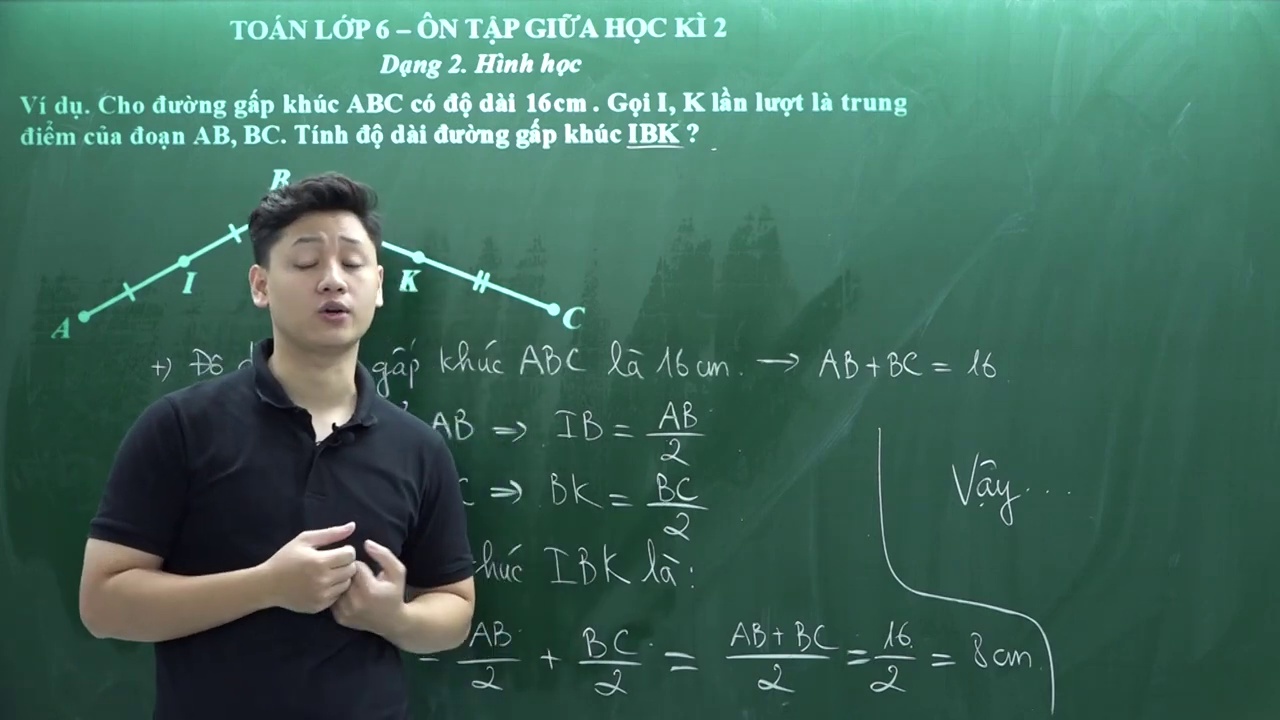 TOÁN LỚP 6 – ÔN TẬP GIỮA HỌC KÌ 2
Dạng 2. Hình học
Ví dụ. Cho đường gấp khúc ABC có độ dài 16cm. Gọi I, K lần lượt là trung
điểm của đoạn AB, BC. Tính độ dài đường gấp khúc IBK ?
B
I
K
A
C
+) Độ gấp khúc ABC là 16 cm. → AB + BC = 16
AB ⇒ IB = AB/2
⇒ BK = BC/2
Vậy...
khúc IBK là:
= AB/2 + BC/2 = (AB + BC)/2 = 16/2 = 8 cm